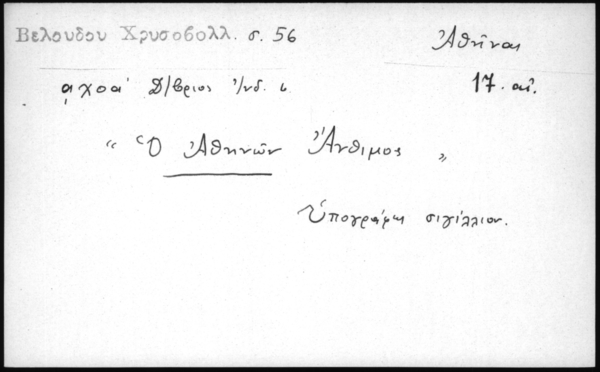 Βελουδου Χρυσοβολλ. σ. 56
Ἀθῆναι
͵αχοα΄ Δ/βριος Ἰνδ. ι.
17. αἰ.
“ Ὁ Ἀθηνῶν Ἄνθιμος „
Ὑπογράφει σιγίλλιον.